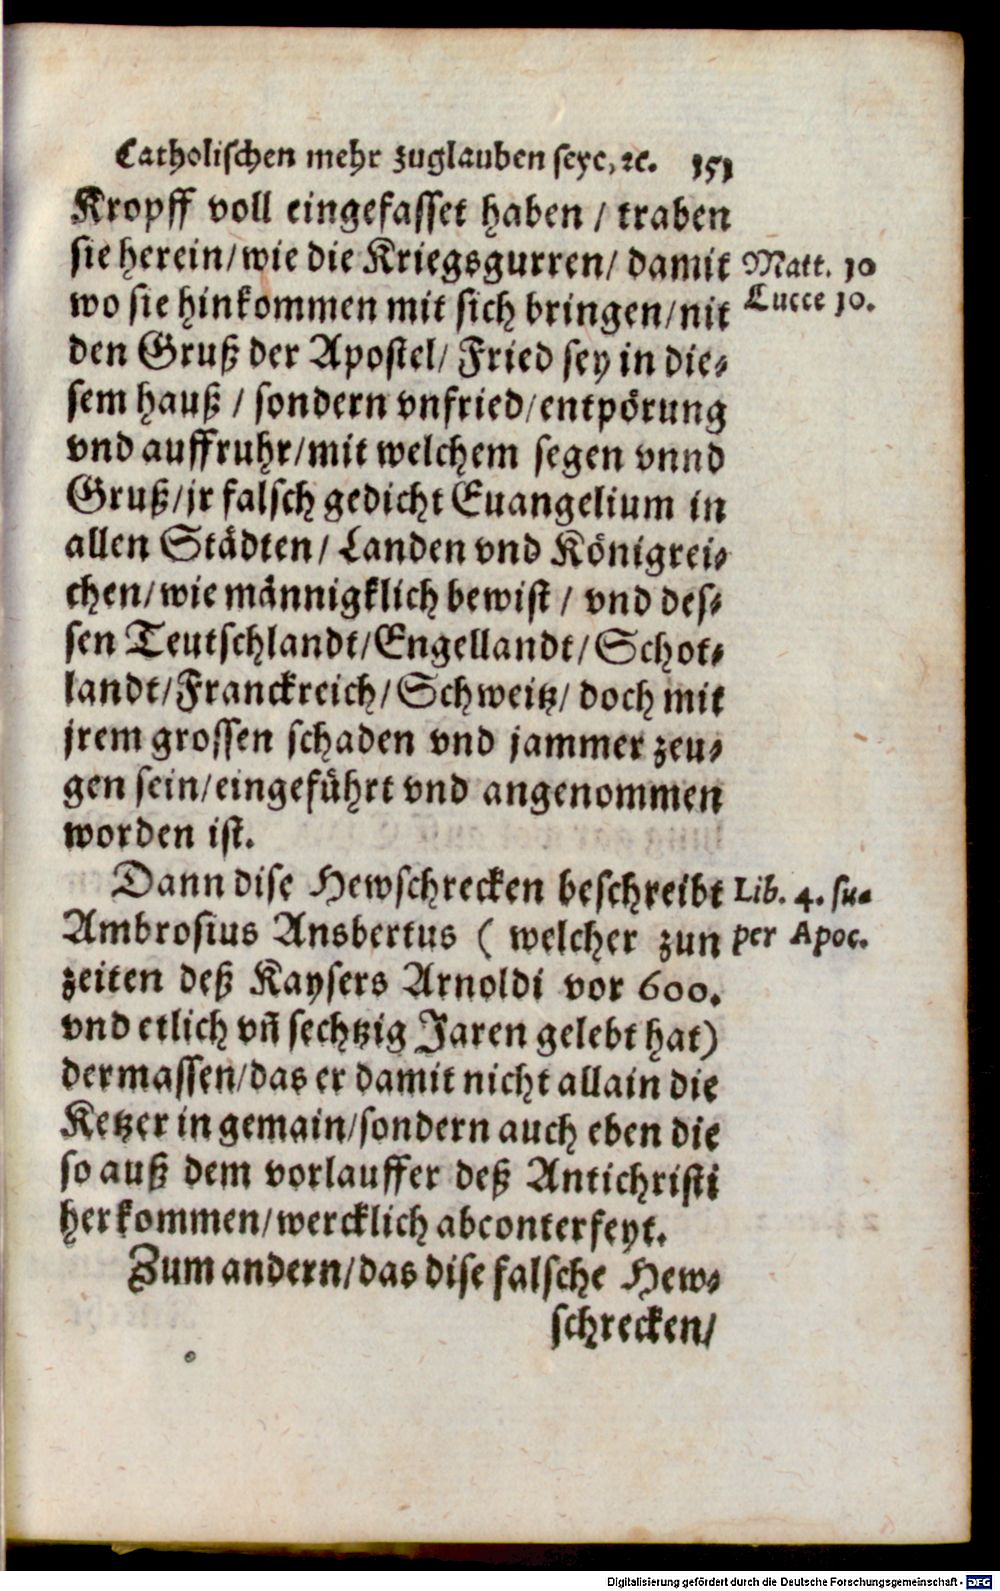 Catholischen mehr zuglauben seye, ꝛc. 151
Kropff voll eingefasset haben / traben
sie herein/wie die Kriegsgurren/ damit
Matt. 10
wo sie hinkommen mit sich bringen/nit
Lucce 10.
den Gruß der Apostel/ Fried sey in die⸗
sem hauß / sondern vnfried/entpörung
vnd auffruhr/mit welchem segen vnnd
Gruß/jr falsch gedicht Euangelium in
allen Städten/ Landen vnd Königrei⸗
chen/wie männigklich bewist / vnd des⸗
sen Teutschlandt/Engellandt/Schot⸗
landt/Franckreich/Schweitz/ doch mit
jrem grossen schaden vnd jammer zeu⸗
gen sein/eingeführt vnd angenommen
worden ist.
Dann dise Hewschrecken beschreibt
Lib. 4. su⸗
Ambrosius Ansbertus ( welcher zun
per Apoc.
zeiten deß Kaysers Arnoldi vor 600.
vnd etlich vñ sechtzig Jaren gelebt hat)
dermassen/das er damit nicht allain die
Ketzer in gemain/sondern auch eben die
so auß dem vorlauffer deß Antichristi
herkommen/wercklich abconterfeyt.
Zum andern/das dise falsche Hew⸗
schrecken/
Digitalisierung gefördert durch die Deutsche Forschungsgemeinschaft - DFG